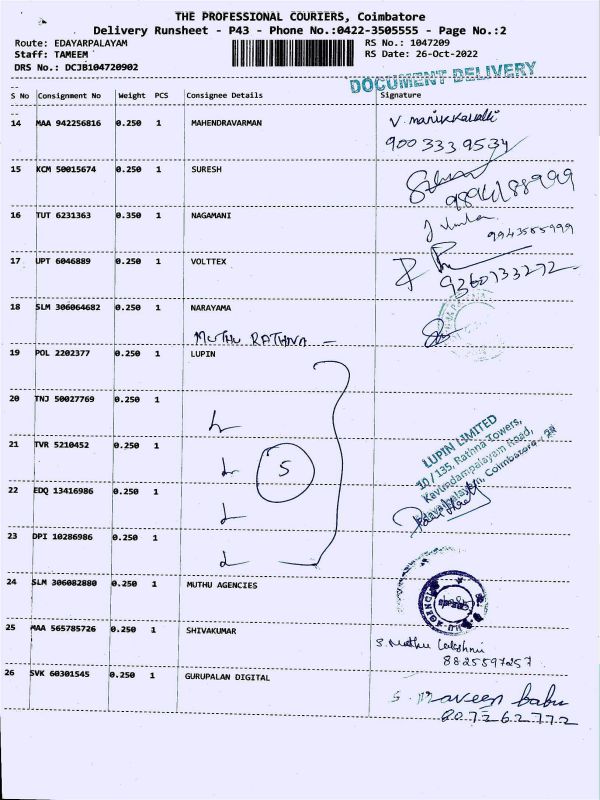 THE PROFESSIONAL COURIERS, Coimbatore
Delivery Runsheet - P43 - Phone No.:0422-3505555 - Page No.:2
Route: EDAYARPALAYAM RS No.: 1047209
Staff: TAMEEM RS Date: 26-Oct-2022
DRS No.: DCJB104720902
DOCUMENT DELIVERY
S No Consignment No Weight PCS Consignee Details Signature
14 MAA 942256816 0.250 1 MAHENDRAVARMAN
900 333 9534
15 KCM 50015674 0.250 1 SURESH
9894188999
16 TUT 6231363 0.350 1 NAGAMANI
9943585999
17 UPT 6046889 0.250 1 VOLTTEX
9360733272
18 SLM 306064682 0.250 1 NARAYAMA
MUTHU RATHNA
19 POL 2202377 0.250 1 LUPIN
20 TNJ 50027769 0.250 1
21 TVR 5210452 0.250 1
5
LUPIN LIMITED
10/135, Rathna Towers,
Kavundampalayam Road,
Edayarpalayam, Coimbatore - 25
22 EDQ 13416986 0.250 1
23 DPI 10286986 0.250 1
24 SLM 306082880 0.250 1 MUTHU AGENCIES
25 MAA 565785726 0.250 1 SHIVAKUMAR
S. Muthu Lakshmi
8825597257
26 SVK 60301545 0.250 1 GURUPALAN DIGITAL
S. Praveen babu
8072262772